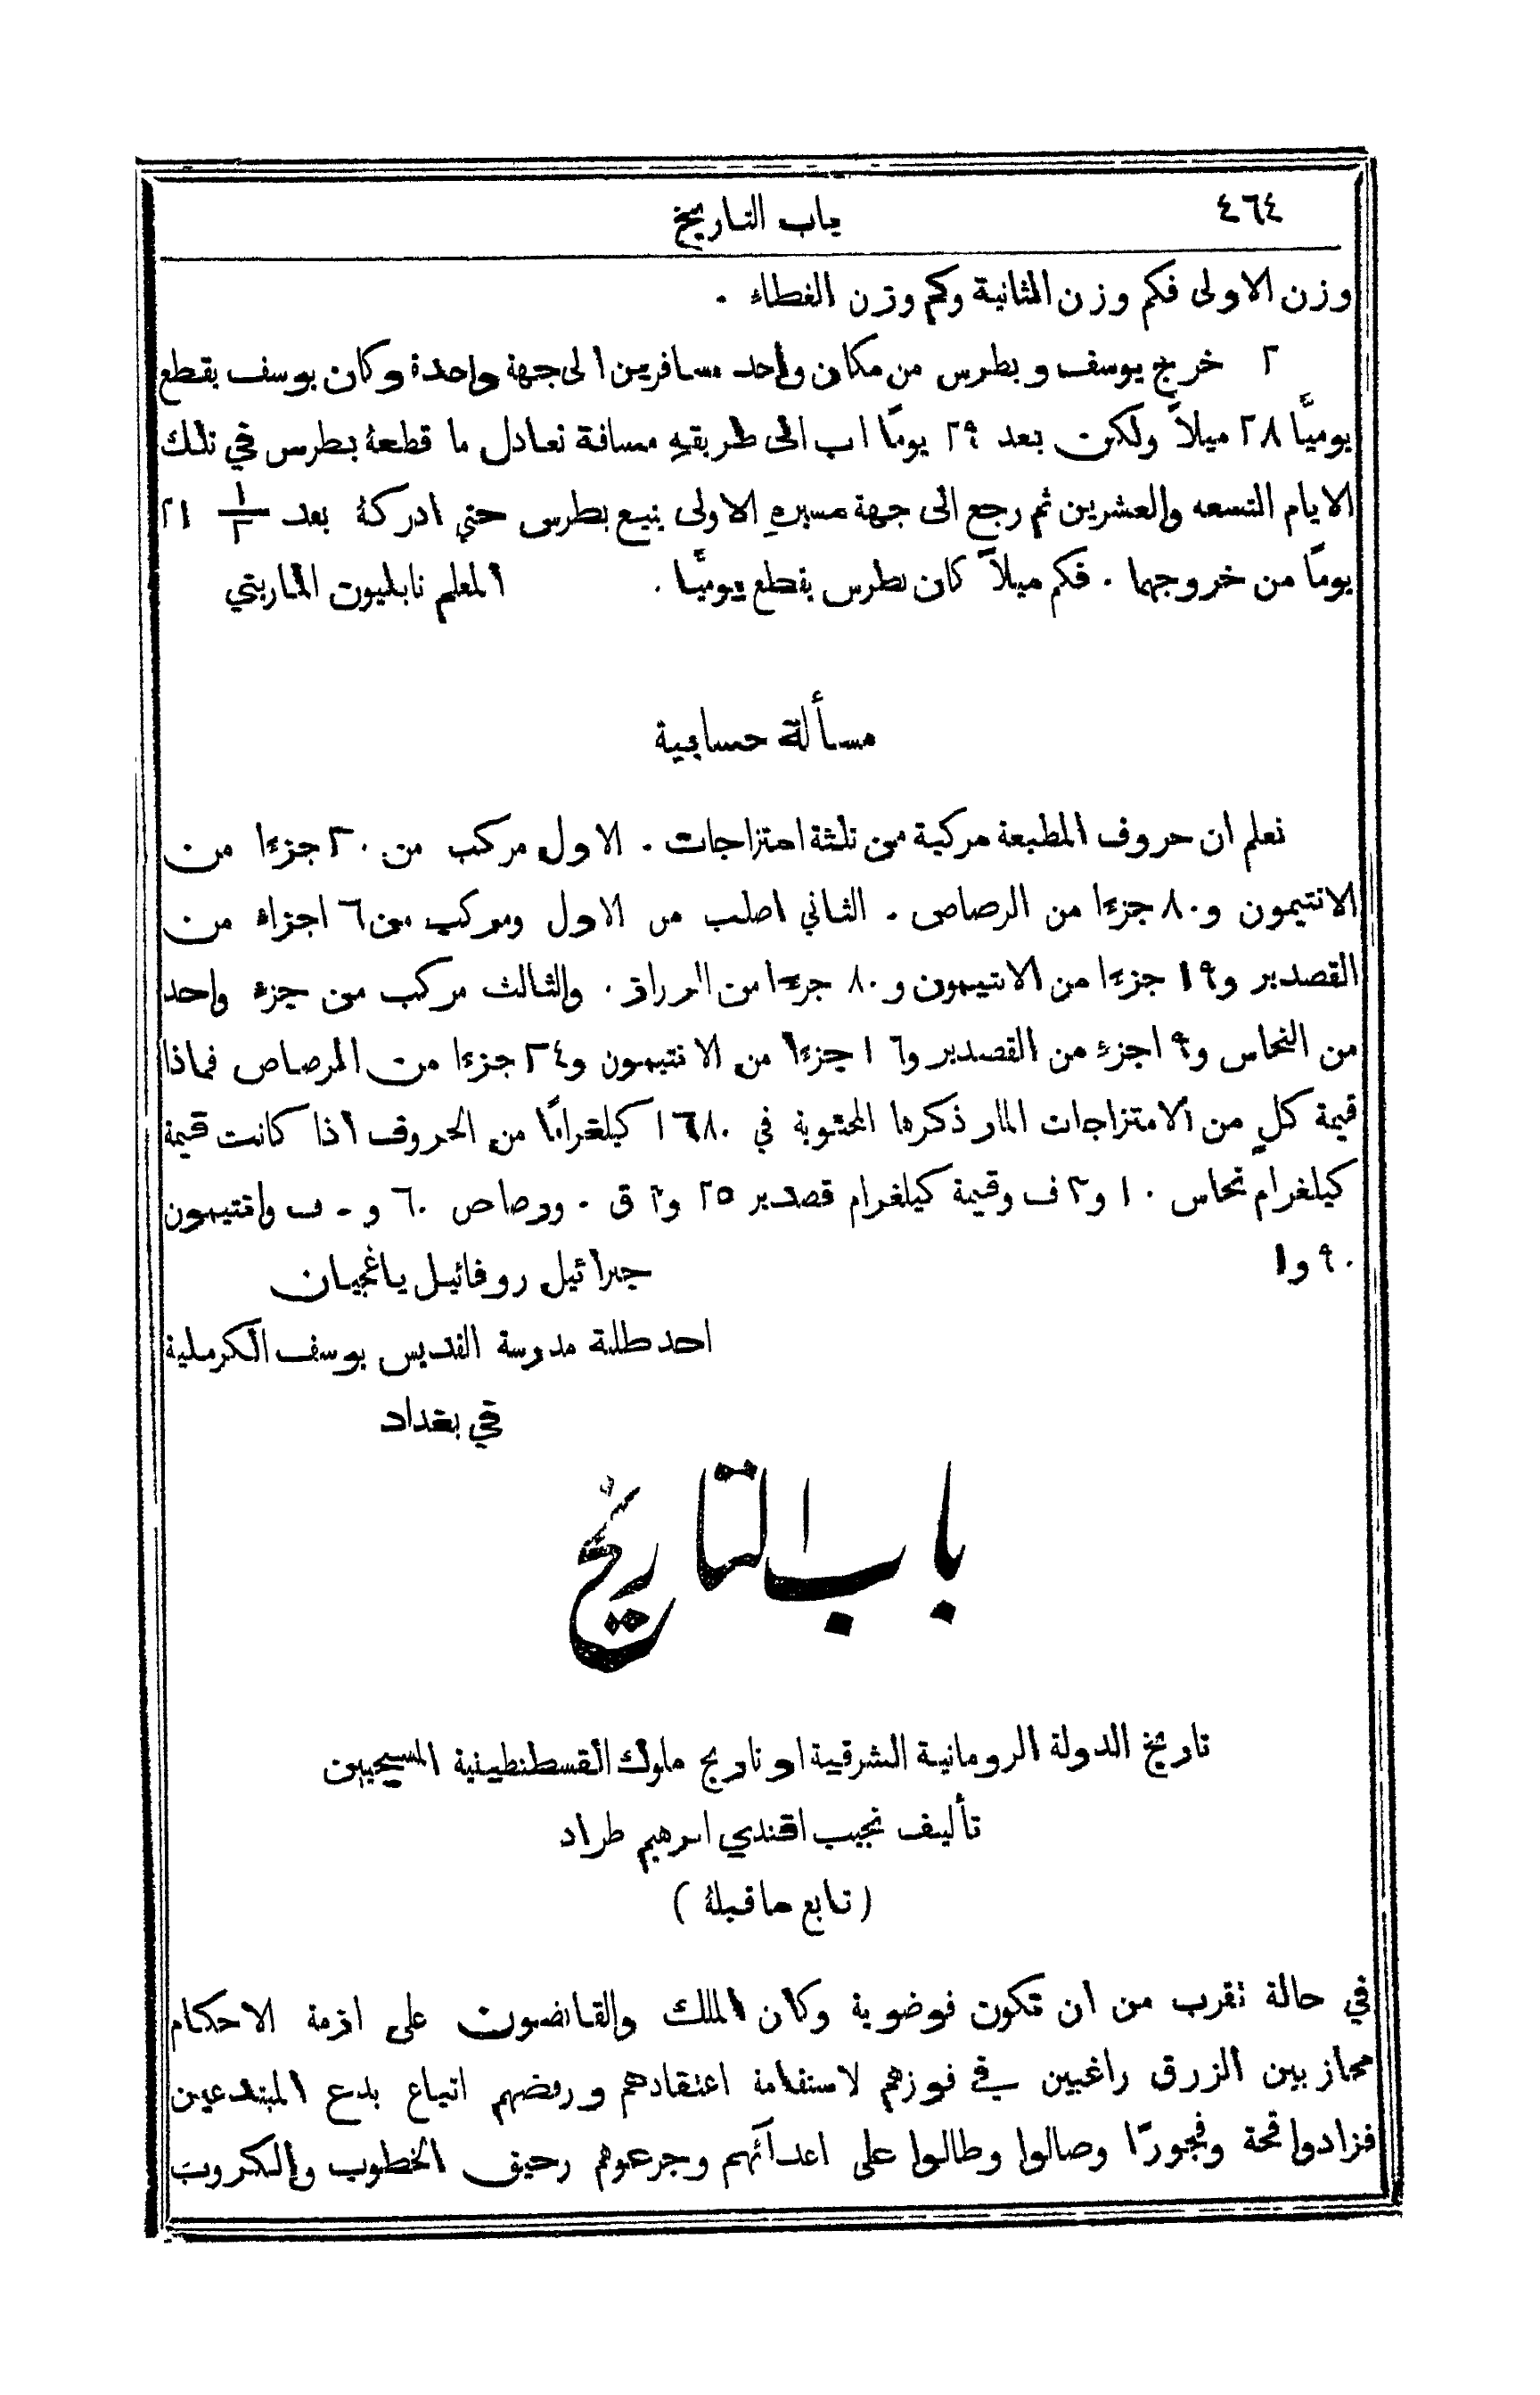 ٤٦٤
باب التاريخ
وزن الاولى فكم وزن الثانية وكم وزن الغطاء .
٢ خرج يوسف وبطرس من مكان واحد مسافرين الى جهة واحدة وكان يوسف يقطع
يوميًّا ٢٨ ميلاً ولكن بعد ٢٩ يومًا اب الى طريقهِ مسافة تعادل ما قطعهُ بطرس في تلك
الايام التسعه والعشرين ثم رجع الى جهة مسيرهِ الاولى يتبع بطرس حتي ادركهُ بعد ١/٢ ٢١
يومًا من خروجهما . فكم ميلاً كان بطرس يقطع يوميًّا . المعلم نابليون الماريني
مسألة حسابية
نعلم ان حروف المطبعة مركبة من ثلثة امتزاجات . الاول مركب من ٢٠ جزءًا من
الانتيمون و٨٠ جزءًا من الرصاص . الثاني اصلب من الاول ومركب من ٦ اجزاء من
القصدير و١٩ جزءًا من الانتيمون و٨٠ جزءًا من . والثالث مركب من جزء واحد
من النحاس و٩ اجزء من القصدير و١٦ جزءًا من الانتيمون و٢٤ جزءًا من الرصاص فماذا
قيمة كلٍ من الامتزاجات المار ذكرها المحتوية في ١٦٨٠ كيلغرامًا من الحروف اذا كانت قيمة
كيلغرام نحاس ١٠ و٢ ف وقيمة كيلغرام قصدير ٢٥ و٢ ق . ورصاص ٦٠ و ٠ ف وانتيمون
٩٠ و١
جبرائيل روفائيل ياغجيان
احد طلبة مدرسة القديس يوسف الكرملية
في بغداد
باب التاريخ
تاريخ الدولة الرومانية الشرقية او تاريخ ملوك القسطنطينية المسيحيين
تأليف نجيب افندي ابرهيم طراد
( تابع ما قبلهُ )
في حالة تقرب من ان تكون فوضوية وكان الملك والقابضون على ازمة الاحكام
محازبين الزرق راغبين في فوزهم لاستقامة اعتقادهم ورفضهم اتباع بدع المبتدعين
فزادوا قحة وفجورًا وصالوا وطالوا على اعدآئهم وجرعوهم رحيق الخطوب والكروب